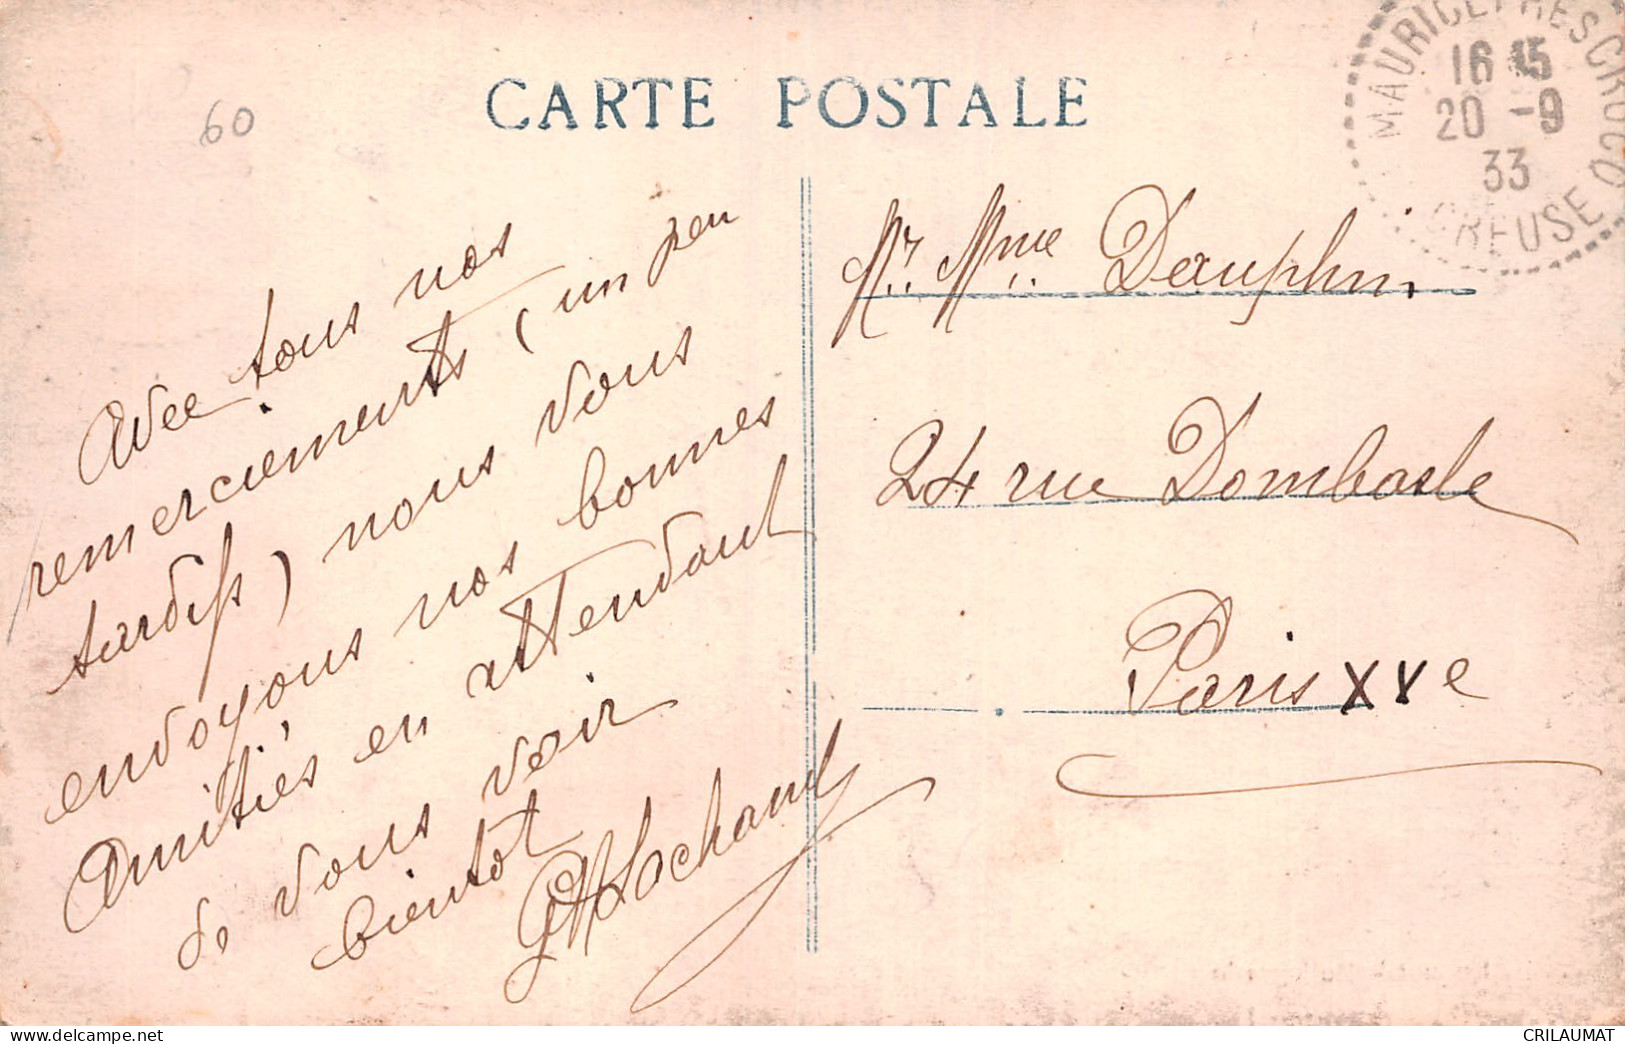 60
CARTE POSTALE
MAURICE PRES CROCQ
16 15
20 -9
33
CREUSE
Avec tous nos
remerciements (un peu
tardifs) nous vous
envoyons nos bonnes
Amitiés en attendant
de vous voir
bientot
Mr. Mme Dauphin
24 rue Dombasle
Paris XVe
CRILAUMAT
www.delcampe.net